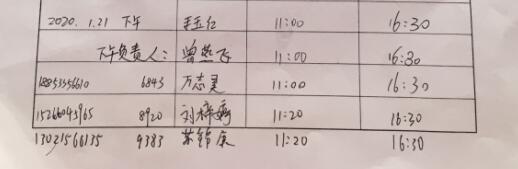 2020.1.21 下午 王玉红 11:00 16:30
下午负责人: 曾燕飞 11:00 16:30
18853556610 6843 万志灵 11:00 16:30
15266045965 8920 刘 11:20 16:30
13021566135 9383 苏 11:20 16:30